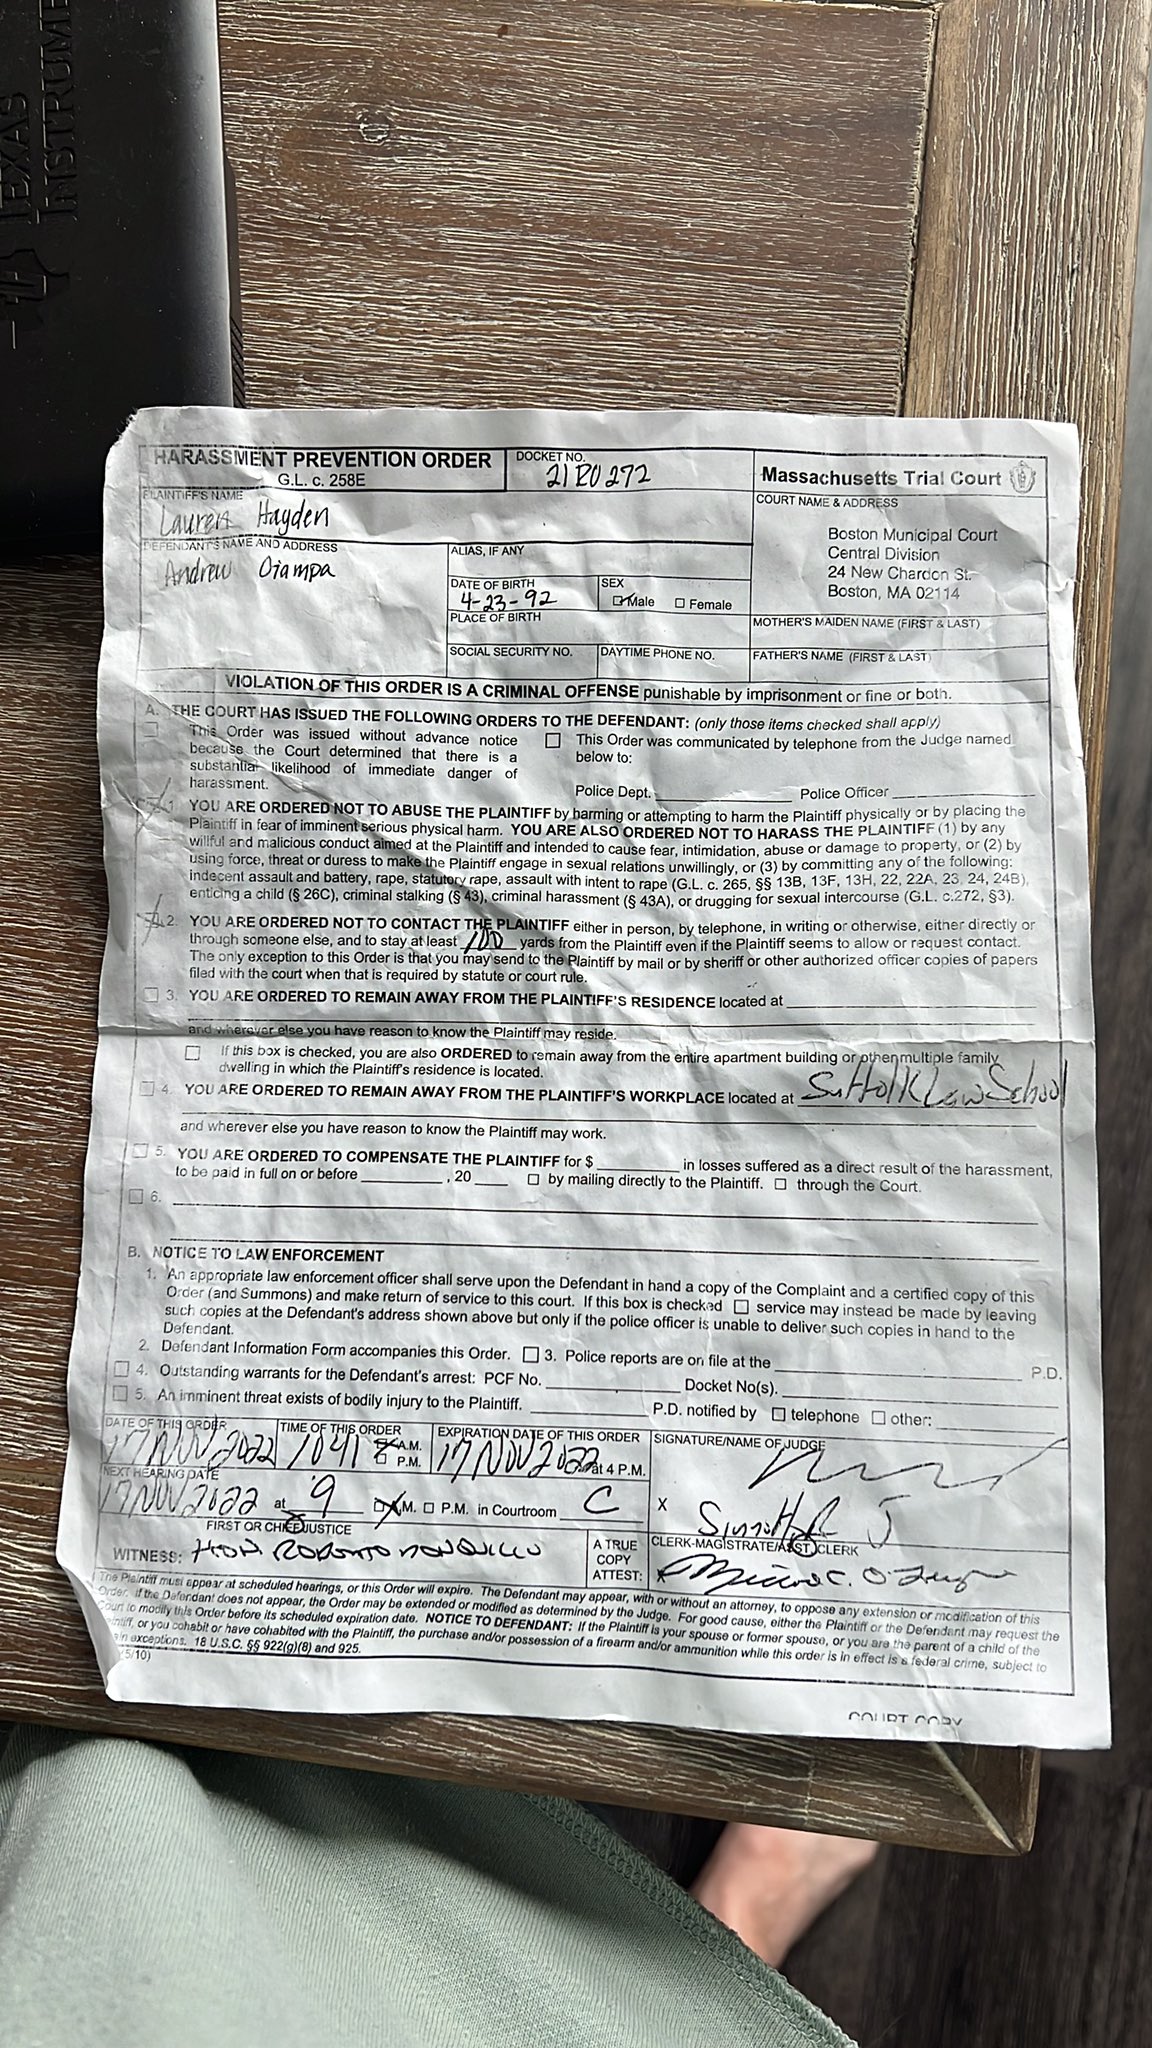 TEXAS
INSTRUME
HARASSMENT PREVENTION ORDER
G.L. c. 258E
DOCKET NO.
21 RO 272
Massachusetts Trial Court
PLAINTIFF'S NAME
Lauren Hayden
COURT NAME & ADDRESS
Boston Municipal Court
Central Division
24 New Chardon St.
Boston, MA 02114
DEFENDANT'S NAME AND ADDRESS
Andrew Ciampa
ALIAS, IF ANY
DATE OF BIRTH
4-23-92
SEX
Male Female
PLACE OF BIRTH
MOTHER'S MAIDEN NAME (FIRST & LAST)
SOCIAL SECURITY NO.
DAYTIME PHONE NO.
FATHER'S NAME (FIRST & LAST)
VIOLATION OF THIS ORDER IS A CRIMINAL OFFENSE punishable by imprisonment or fine or both.
A. THE COURT HAS ISSUED THE FOLLOWING ORDERS TO THE DEFENDANT: (only those items checked shall apply)
This Order was issued without advance notice
because the Court determined that there is a
substantial likelihood of immediate danger of
harassment.
This Order was communicated by telephone from the Judge named
below to:
Police Dept. Police Officer
1. YOU ARE ORDERED NOT TO ABUSE THE PLAINTIFF by harming or attempting to harm the Plaintiff physically or by placing the
Plaintiff in fear of imminent serious physical harm. YOU ARE ALSO ORDERED NOT TO HARASS THE PLAINTIFF (1) by any
willful and malicious conduct aimed at the Plaintiff and intended to cause fear, intimidation, abuse or damage to property, or (2) by
using force, threat or duress to make the Plaintiff engage in sexual relations unwillingly, or (3) by committing any of the following:
indecent assault and battery, rape, statutory rape, assault with intent to rape (G.L. c. 265, §§ 13B, 13F, 13H, 22, 22A, 23, 24, 24B),
enticing a child (§ 26C), criminal stalking (§ 43), criminal harassment (§ 43A), or drugging for sexual intercourse (G.L. c.272, §3).
2. YOU ARE ORDERED NOT TO CONTACT THE PLAINTIFF either in person, by telephone, in writing or otherwise, either directly or
through someone else, and to stay at least 100 yards from the Plaintiff even if the Plaintiff seems to allow or request contact.
The only exception to this Order is that you may send to the Plaintiff by mail or by sheriff or other authorized officer copies of papers
filed with the court when that is required by statute or court rule.
3. YOU ARE ORDERED TO REMAIN AWAY FROM THE PLAINTIFF'S RESIDENCE located at
and wherever else you have reason to know the Plaintiff may reside.
If this box is checked, you are also ORDERED to remain away from the entire apartment building or other multiple family
dwelling in which the Plaintiff's residence is located.
4. YOU ARE ORDERED TO REMAIN AWAY FROM THE PLAINTIFF'S WORKPLACE located at Suffolk Law School
and wherever else you have reason to know the Plaintiff may work.
5. YOU ARE ORDERED TO COMPENSATE THE PLAINTIFF for $ in losses suffered as a direct result of the harassment,
to be paid in full on or before , 20 by mailing directly to the Plaintiff. through the Court.
6.
B. NOTICE TO LAW ENFORCEMENT
1. An appropriate law enforcement officer shall serve upon the Defendant in hand a copy of the Complaint and a certified copy of this
Order (and Summons) and make return of service to this court. If this box is checked service may instead be made by leaving
such copies at the Defendant's address shown above but only if the police officer is unable to deliver such copies in hand to the
Defendant.
2. Defendant Information Form accompanies this Order. 3. Police reports are on file at the P.D.
4. Outstanding warrants for the Defendant's arrest: PCF No. Docket No(s).
5. An imminent threat exists of bodily injury to the Plaintiff. P.D. notified by telephone other:
DATE OF THIS ORDER
17 NOV 2022
TIME OF THIS ORDER
1041 A.M.
P.M.
EXPIRATION DATE OF THIS ORDER
17 NOV 2022 at 4 P.M.
SIGNATURE/NAME OF JUDGE
NEXT HEARING DATE
17 NOV 2022 at 9 A.M. P.M. in Courtroom C
X
J
FIRST OR CHIEF JUSTICE
WITNESS: HON. ROBERTO
A TRUE
COPY
ATTEST:
CLERK-MAGISTRATE/ASST. CLERK
The Plaintiff must appear at scheduled hearings, or this Order will expire. The Defendant may appear, with or without an attorney, to oppose any extension or modification of this
Order. If the Defendant does not appear, the Order may be extended or modified as determined by the Judge. For good cause, either the Plaintiff or the Defendant may request the
Court to modify this Order before its scheduled expiration date. NOTICE TO DEFENDANT: If the Plaintiff is your spouse or former spouse, or you are the parent of a child of the
ntiff, or you cohabit or have cohabited with the Plaintiff, the purchase and/or possession of a firearm and/or ammunition while this order is in effect is a federal crime, subject to
ain exceptions. 18 U.S.C. §§ 922(g)(8) and 925.
5/10)
COURT COPY